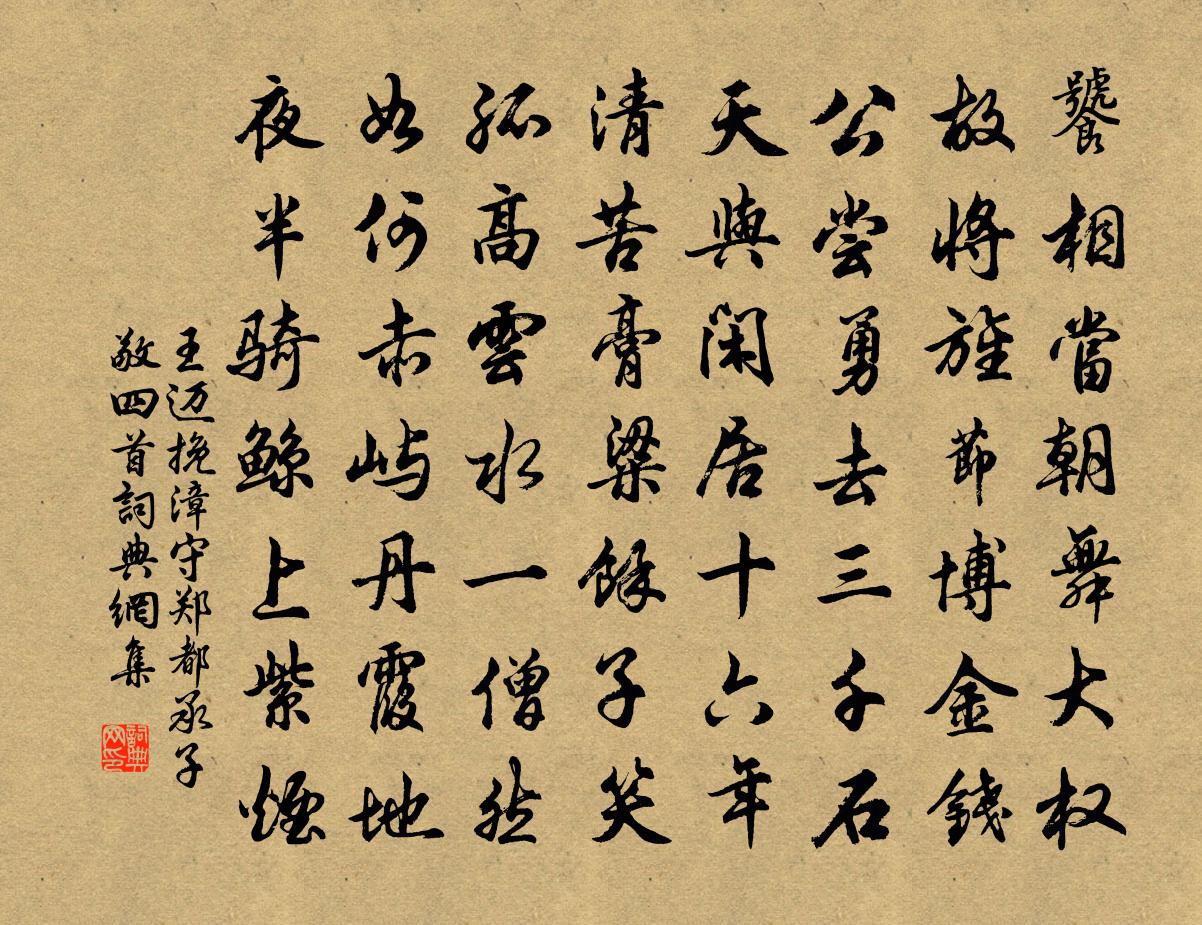 饕相當朝舞大权
故將旌節博金錢
公尝勇去三千石
天與閑居十六年
清苦膏粱餘子笑
孤高雲水一僧然
如何赤屿丹霞地
夜半骑鲸上紫煙
王迈挽漳守郑都承子
敬四首詞典網集
詞典网印